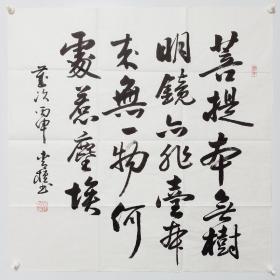 菩提本無樹
明鏡亦非臺本
来無一物何
處惹塵埃
歲次丙申